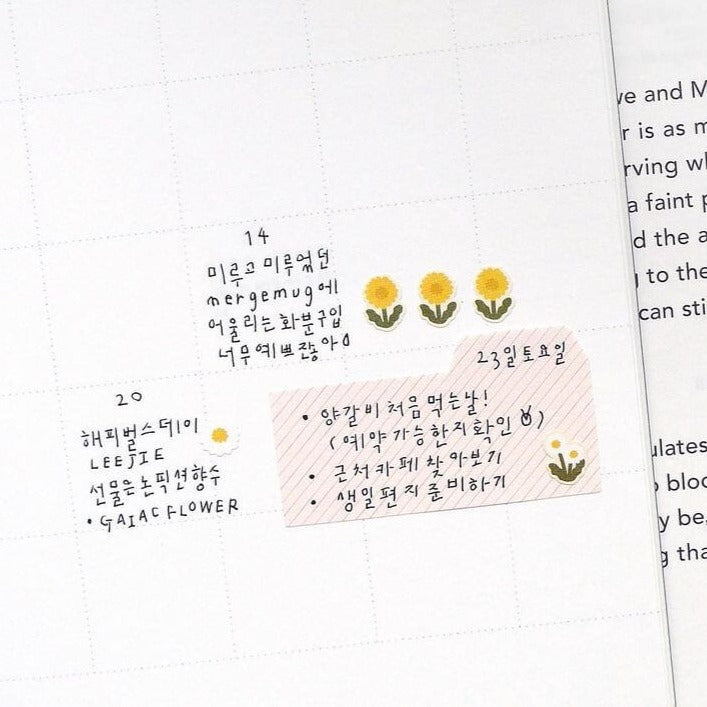 14
미루고 미루었던
mergemug에
어울리는 화분구입
너무 예쁘잖아
23일토요일
• 양갈비 처음 먹는날!
(예약 가능한지 확인)
• 근처 카페 찾아보기
• 생일 편지 준비하기
20
해피벌스데이
LEEJIE
선물은논픽션향수
• GAIAC FLOWER
we and M
r is as m
rving wh
a faint p
d the a
to the
can sti
ulates
bloc
y be,
g tha